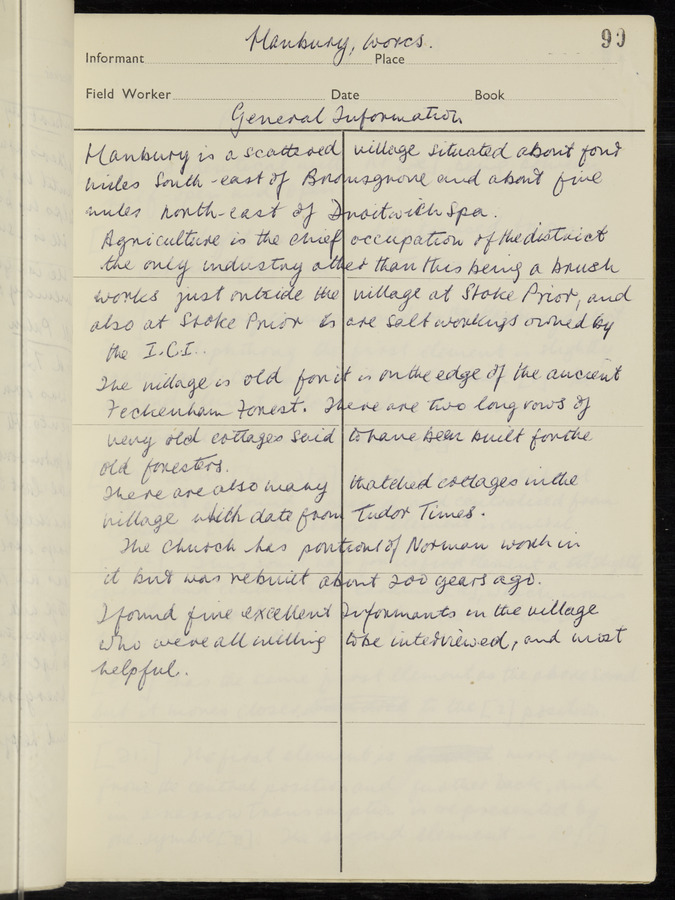 Hanbury, Worcs.
90
Informant Place
Field Worker Date Book
General Information
Hanbury is a scattered village situated about four
miles South-east of Bromsgrove and about five
miles north-east of Droitwich Spa.
Agriculture is the chief occupation of the district
the only industry other than this being a brush
works just outside the village at Stoke Prior, and
also at Stoke Prior are salt workings owned by
the I.C.I..
The village is old for it is on the edge of the ancient
Feckenham Forest. There are two long rows of
very old cottages said to have been built for the
old foresters.
There are also many thatched cottages in the
village which date from Tudor Times.
The Church has portions of Norman work in
it but was rebuilt about 200 years ago.
I found five excellent Informants in the village
who were all willing to be interviewed, and most
helpful.